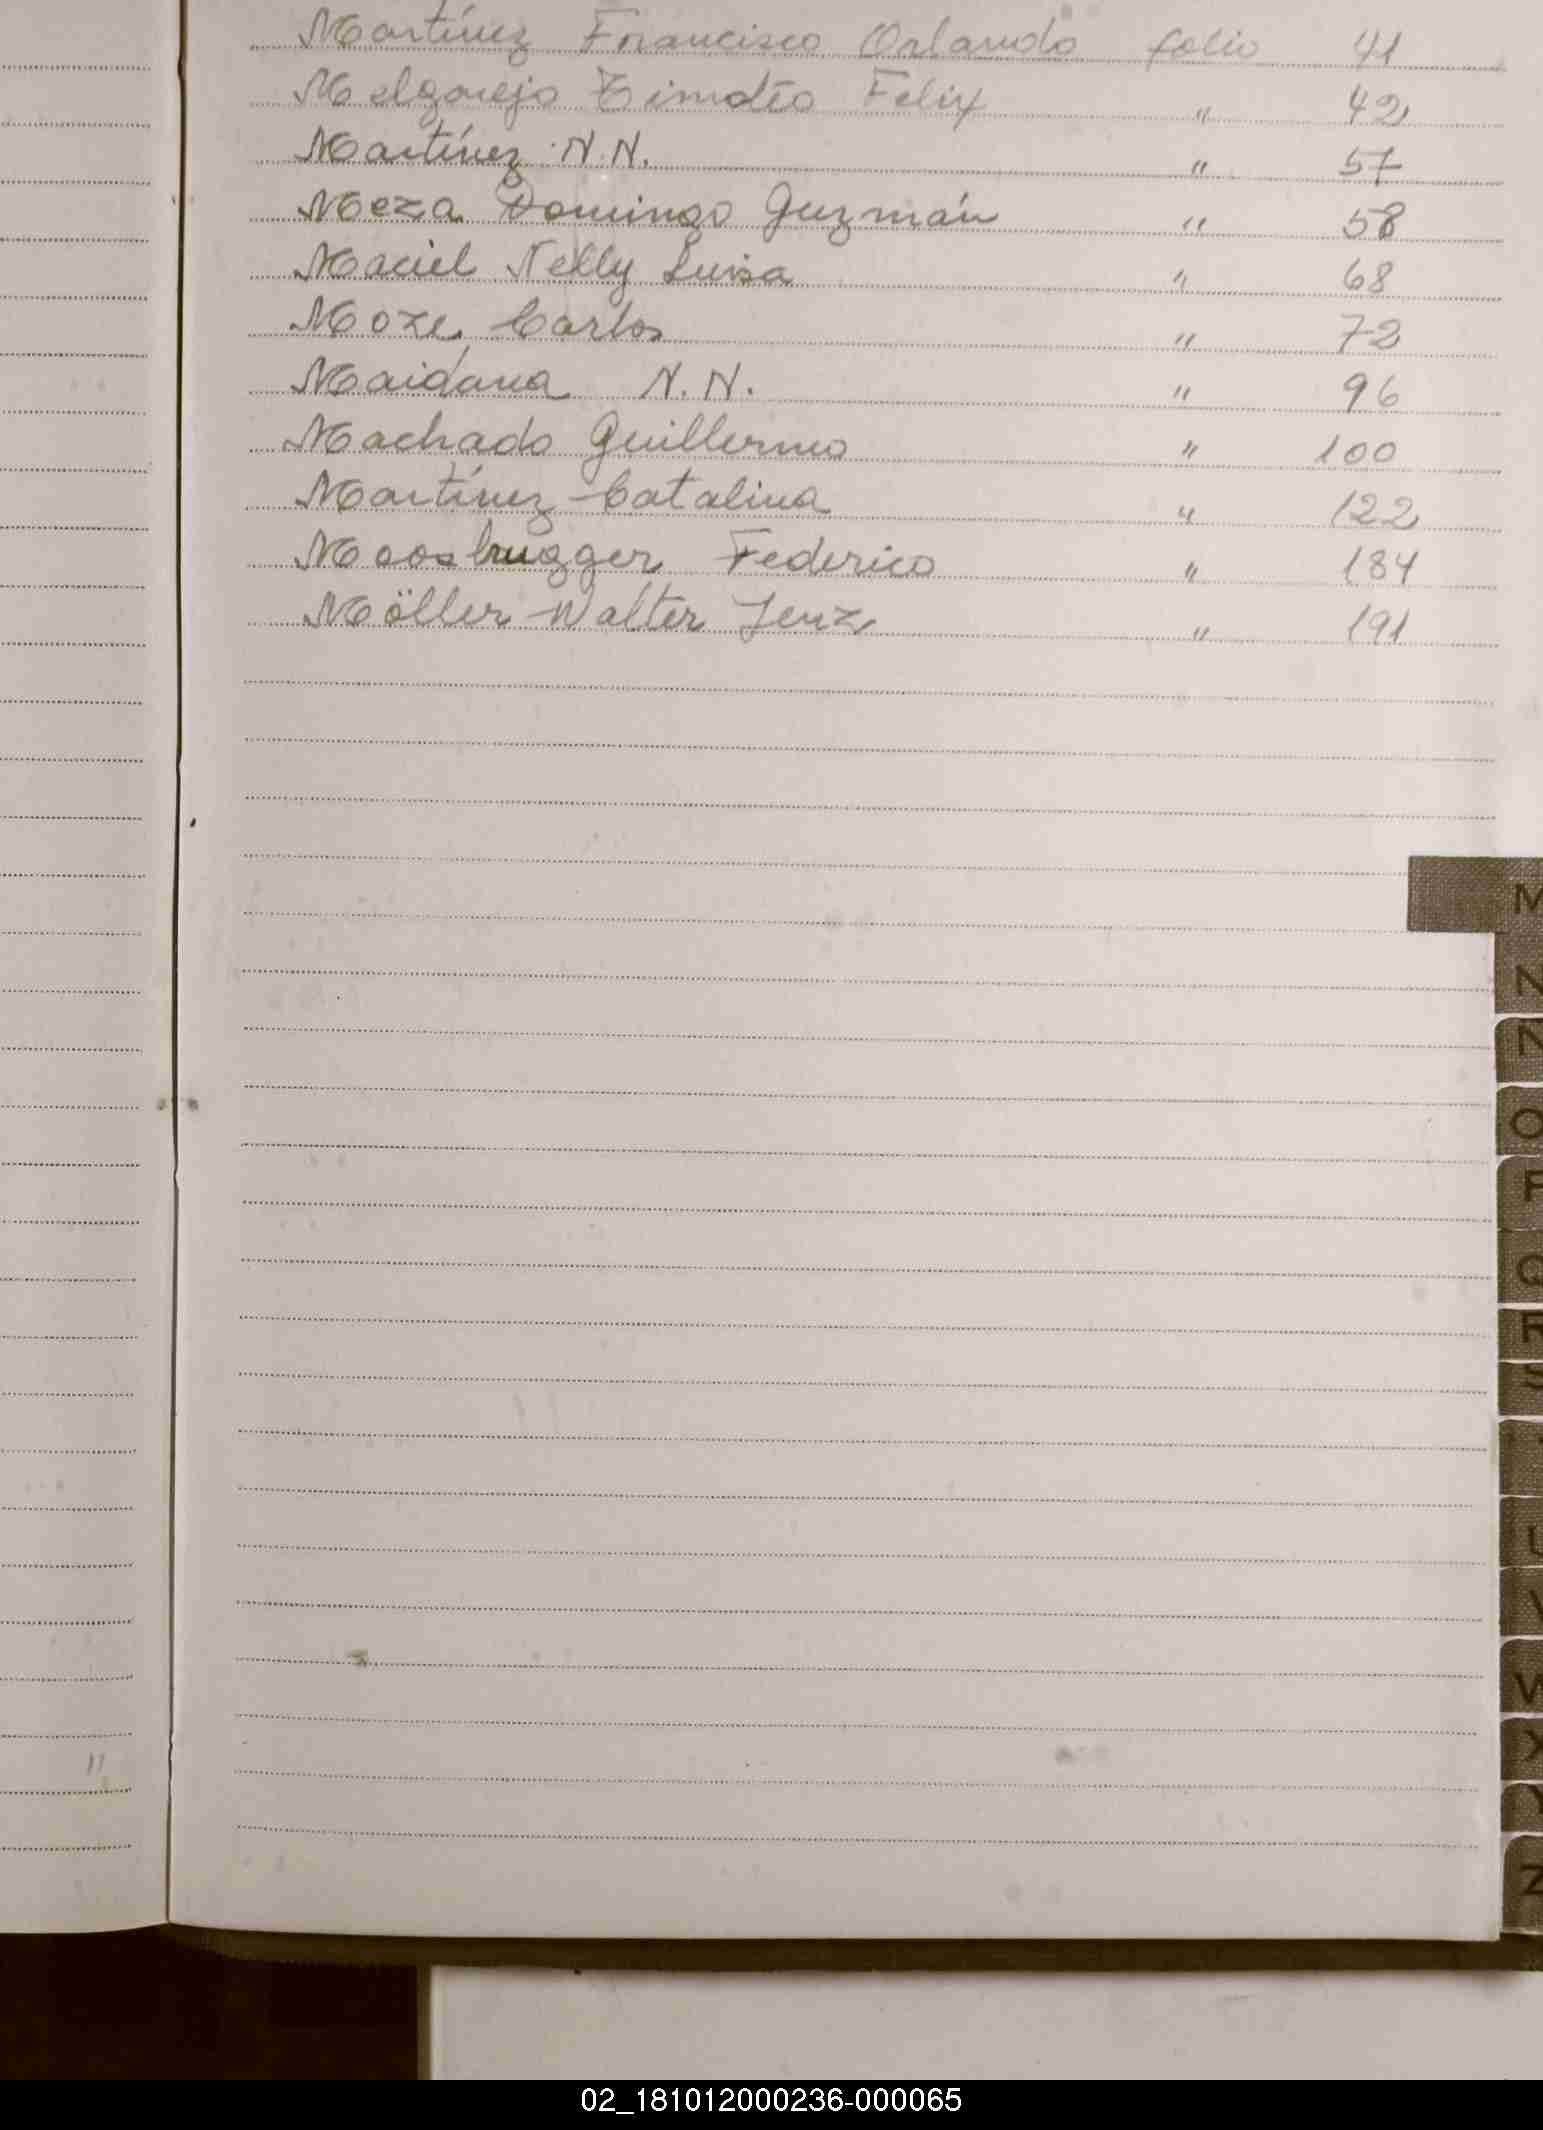 Martínez Francisco Orlando folio 41
Melgarejo Timoteo Felix " 42
Martínez N.N. " 57
Meza Domingo Guzmán " 58
Maciel Nelly Luisa " 68
Moze Carlos " 72
Maidana N.N. " 96
Machado Guillermo " 100
Martínez Catalina " 122
Moosbrugger Federico " 184
Möller Walter Jenz " 191
M
N
Ñ
O
P
Q
R
S
U
V
W
X
Y
Z
02_181012000236-000065